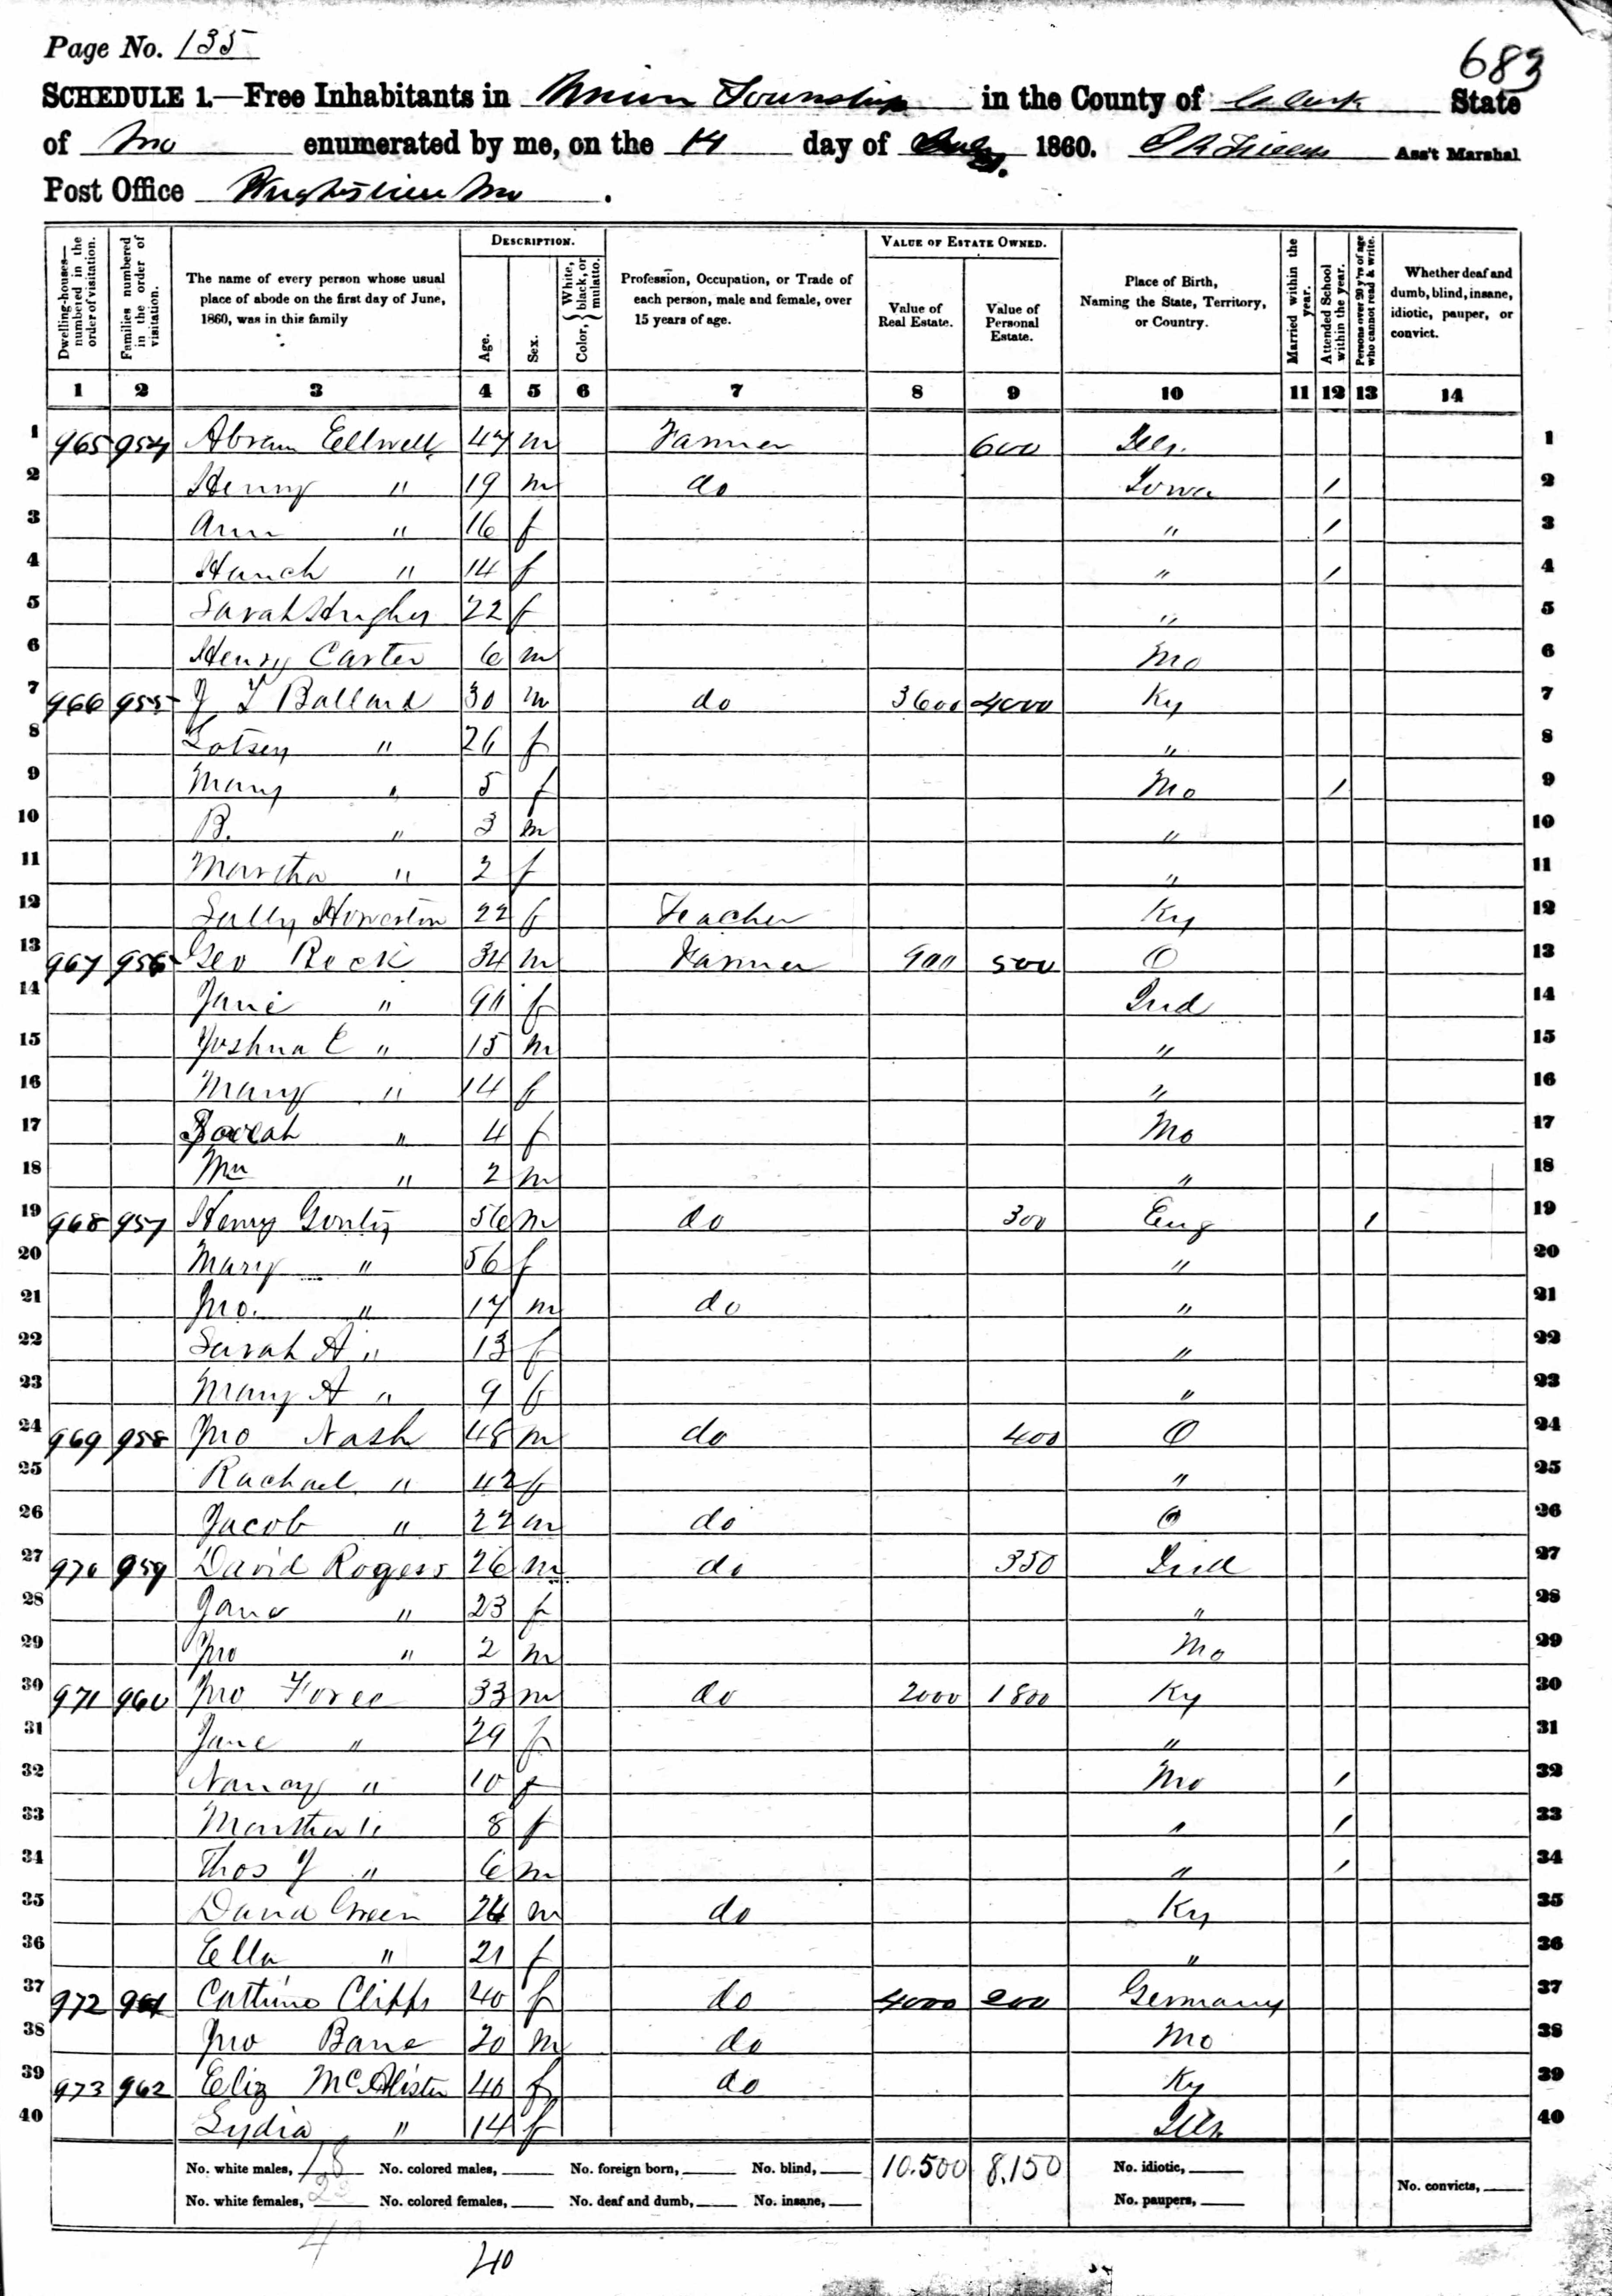 Page No. 135
683
SCHEDULE 1.—Free Inhabitants in Union Township in the County of Clark State
of Mo enumerated by me, on the 14 day of July 1860. Ass't Marshal
Post Office Mo.
Dwelling-houses—numbered in the order of visitation.
Families numbered in the order of visitation.
The name of every person whose usual place of abode on the first day of June, 1860, was in this family
DESCRIPTION.
Age.
Sex.
Color, { White, black, or mulatto.
Profession, Occupation, or Trade of each person, male and female, over 15 years of age.
VALUE OF ESTATE OWNED.
Value of Real Estate.
Value of Personal Estate.
Place of Birth, Naming the State, Territory, or Country.
Married within the year.
Attended School within the year.
Persons over 20 y'rs of age who cannot read & write.
Whether deaf and dumb, blind, insane, idiotic, pauper, or convict.
1 2 3 4 5 6 7 8 9 10 11 12 13 14
1 965 954 Abram Eellwell 47 m Farmer 600 Ills. 1
2 Henny " 19 m do Iowa / 2
3 Ann " 16 f " / 3
4 Hanch " 14 f " / 4
5 Sarah Hughes 22 f " 5
6 Henry Carter 6 m Mo 6
7 966 955 J T Ballard 30 m do 3600 4000 Ky 7
8 " 26 f " 8
9 Mary " 5 f Mo / 9
10 B. " 3 m " 10
11 Martha " 2 f " 11
12 Sally Howerton 22 f Teacher Ky 12
13 967 956 Geo Rock 34 m Farmer 900 500 O 13
14 Jane " f Ind 14
15 Joshua C " 15 m " 15
16 Mary " 14 f " 16
17 " 4 f Mo 17
18 Wm " 2 m " 18
19 968 957 Henry 56 m do 300 Eng / 19
20 Mary " 56 f " 20
21 Jno. " 17 m do " 21
22 Sarah A " 13 f " 22
23 Mary A " 9 f " 23
24 969 958 Jno Nash 48 m do 400 O 24
25 Rachael " 42 f " 25
26 Jacob " 22 m do O 26
27 970 959 David Rogers 26 m do 350 Ind 27
28 Jane " 23 f " 28
29 Jno " 2 m Mo 29
30 971 960 Jno Foree 33 m do 2000 1800 Ky 30
31 Jane " 29 f " 31
32 Nancy " 10 f Mo / 32
33 Martha " 8 f " / 33
34 Thos J " 6 m " / 34
35 David Green 24 m do Ky 35
36 Ella " 21 f " 36
37 972 961 Clipps 40 f do 4000 200 Germany 37
38 Jno Bane 20 m do Mo 38
39 973 962 Eliz McAlister 40 f do Ky 39
40 Lydia " 14 f Ills 40
No. white males, 18 No. colored males, No. foreign born, No. blind, 10.500 8.150 No. idiotic,
No. white females, 22 No. colored females, No. deaf and dumb, No. insane, No. paupers, No. convicts,
40
40